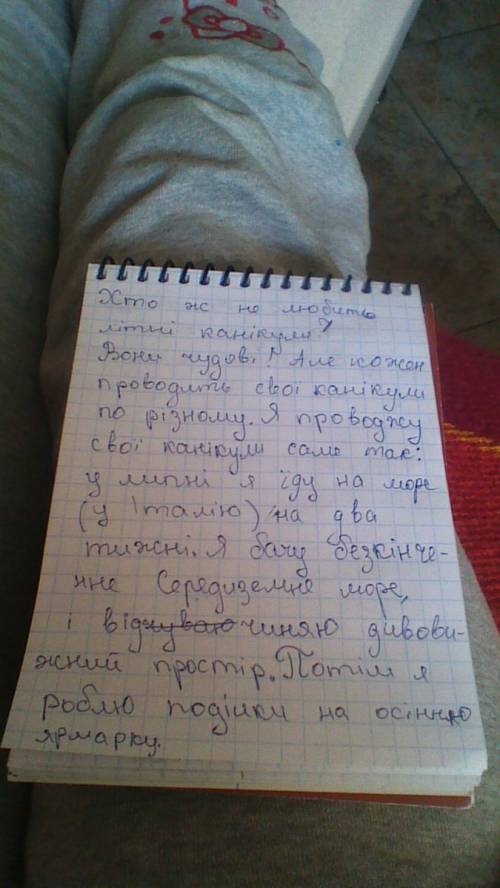 Хто ж не любить
літні канікули?
Вони чудові! Але кожен
проводить свої канікули
по різному. Я проводжу
свої канікули саме так:
у липні я їду на море
(у Італію) на два
тижні. Я бачу безкінче-
нне Середземне море,
і відчуваю чиняю дивови-
жний простір. Потім я
роблю поділки на осінню
ярмарку.